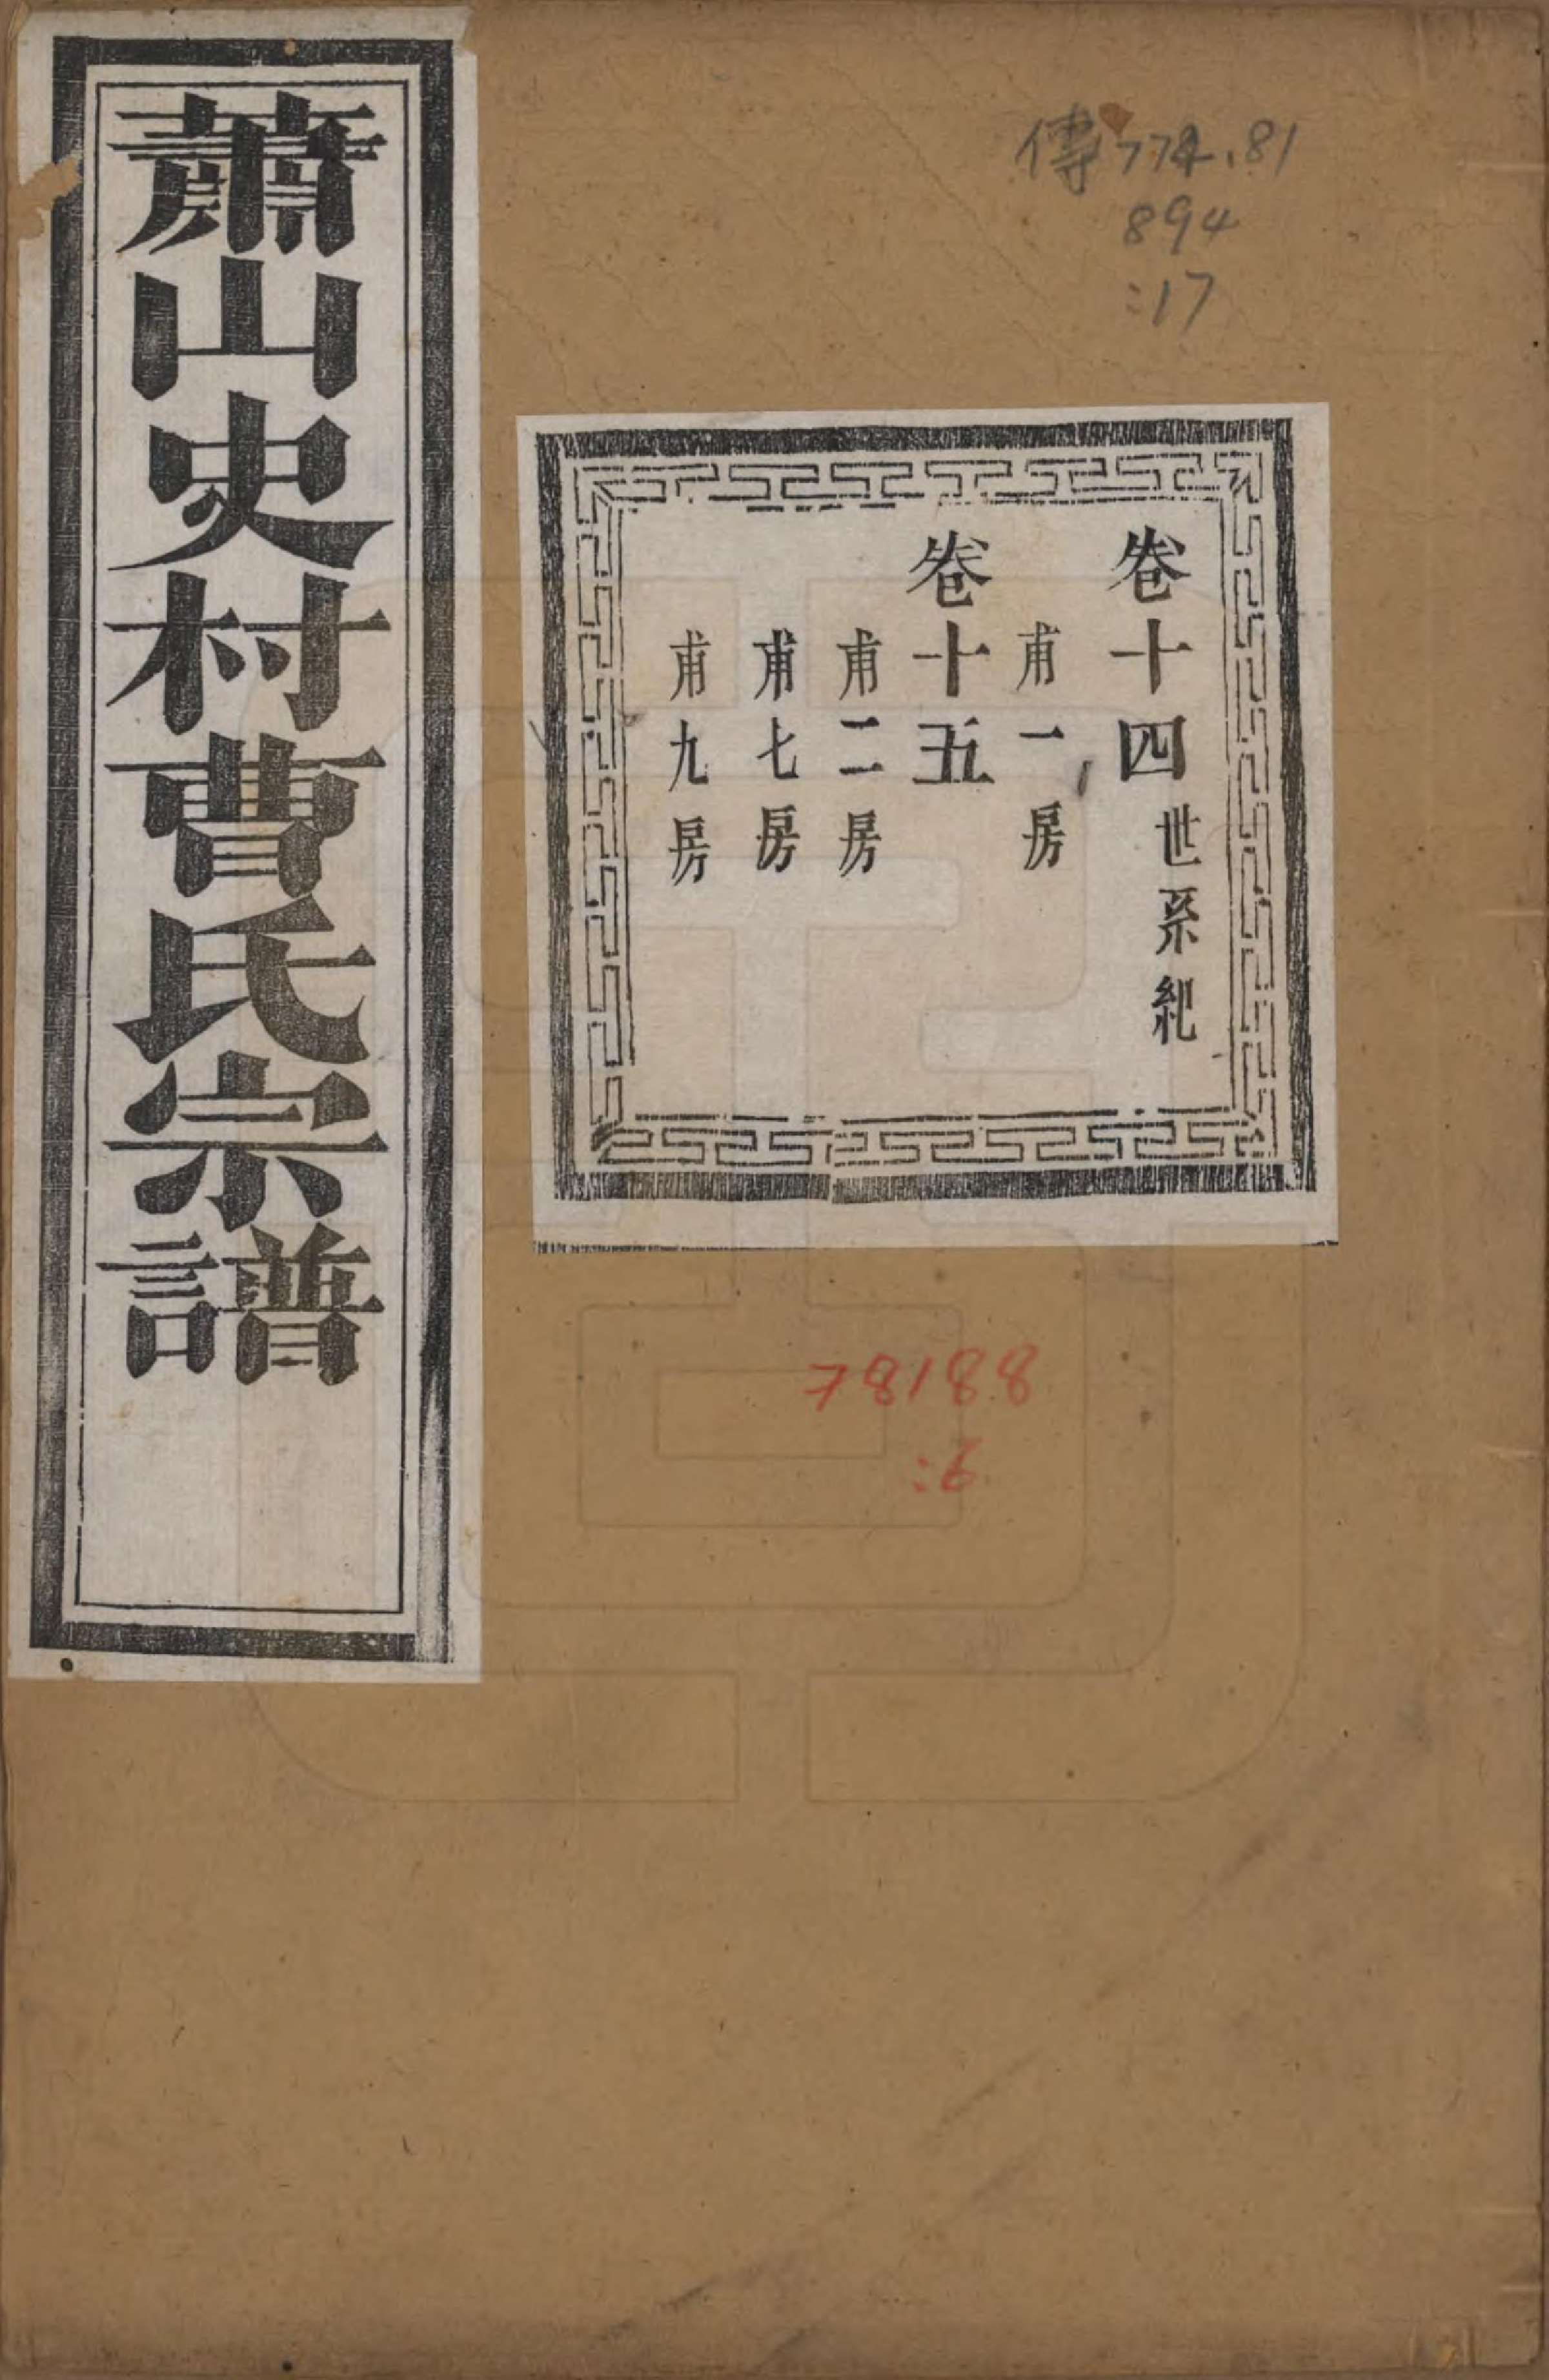 蕭山史村曹氏宗譜
傳774.81
894
:17
卷十四世系紀
甫一房
卷十五
甫二房
甫七房
甫九房
78188
:6